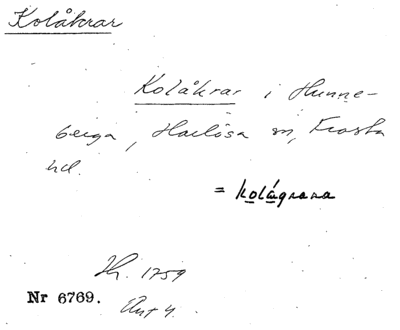 Kolåkrar
Kolåkrar i Hunne-
berga, Harlösa sn, Frosta
hd.
= kolágrana
Nr 6769.